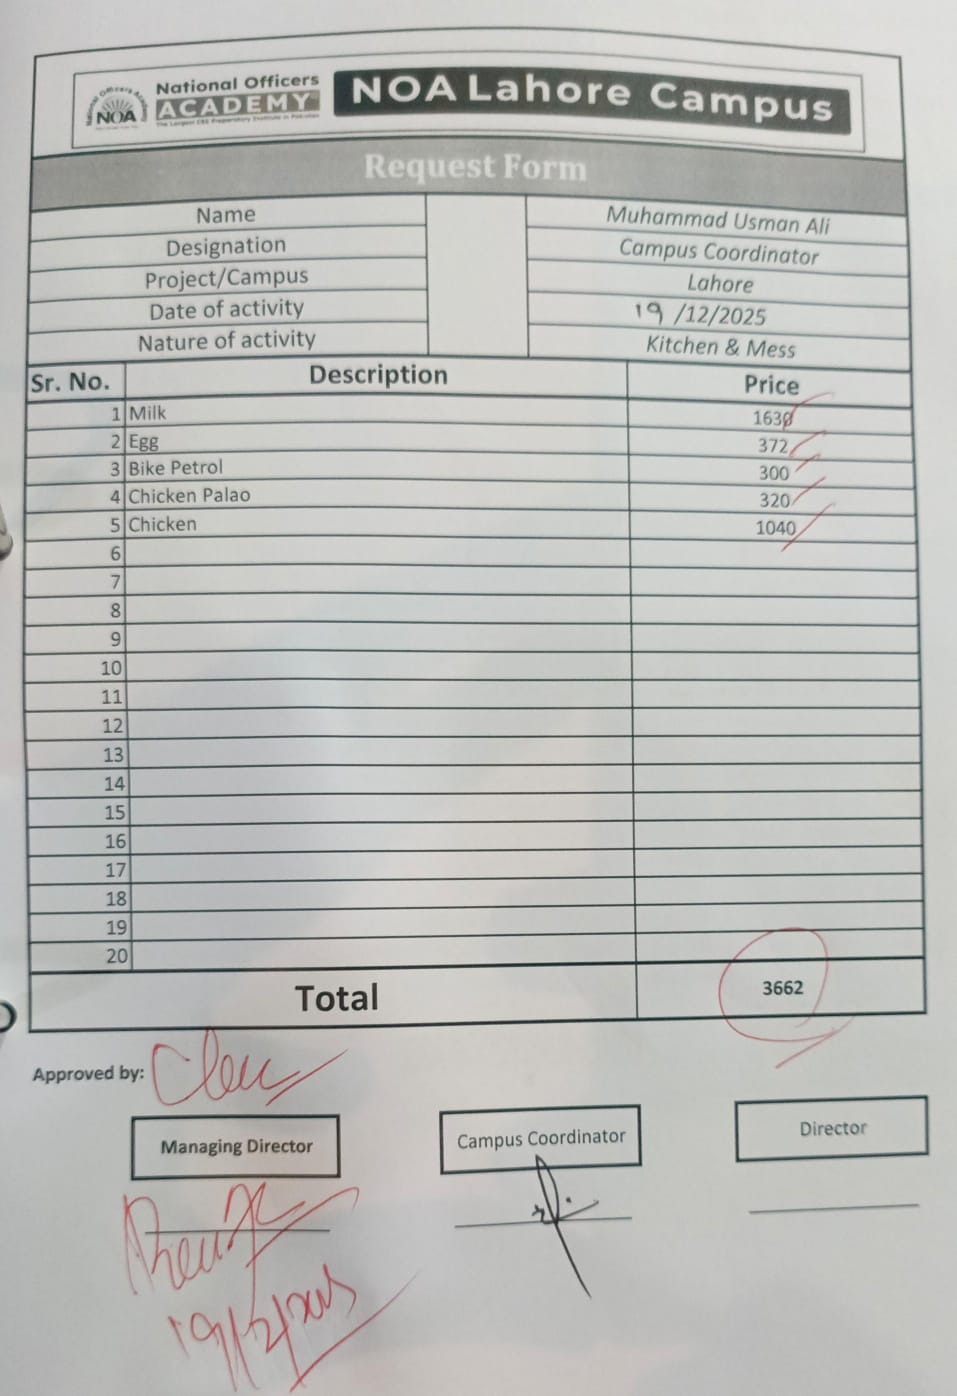 National Officers
ACADEMY
NOA
NOA Lahore Campus
Request Form
Name Muhammad Usman Ali
Designation Campus Coordinator
Project/Campus Lahore
Date of activity 19/12/2025
Nature of activity Kitchen & Mess
Sr. No. Description Price
1 Milk 1630
2 Egg 372
3 Bike Petrol 300
4 Chicken Palao 320
5 Chicken 1040
6
7
8
9
10
11
12
13
14
15
16
17
18
19
20
Total 3662
Approved by:
Managing Director Campus Coordinator Director